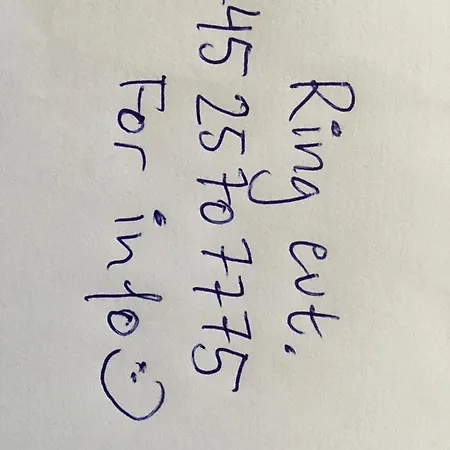 Ring evt.
45 25 70 77 75
For info :)